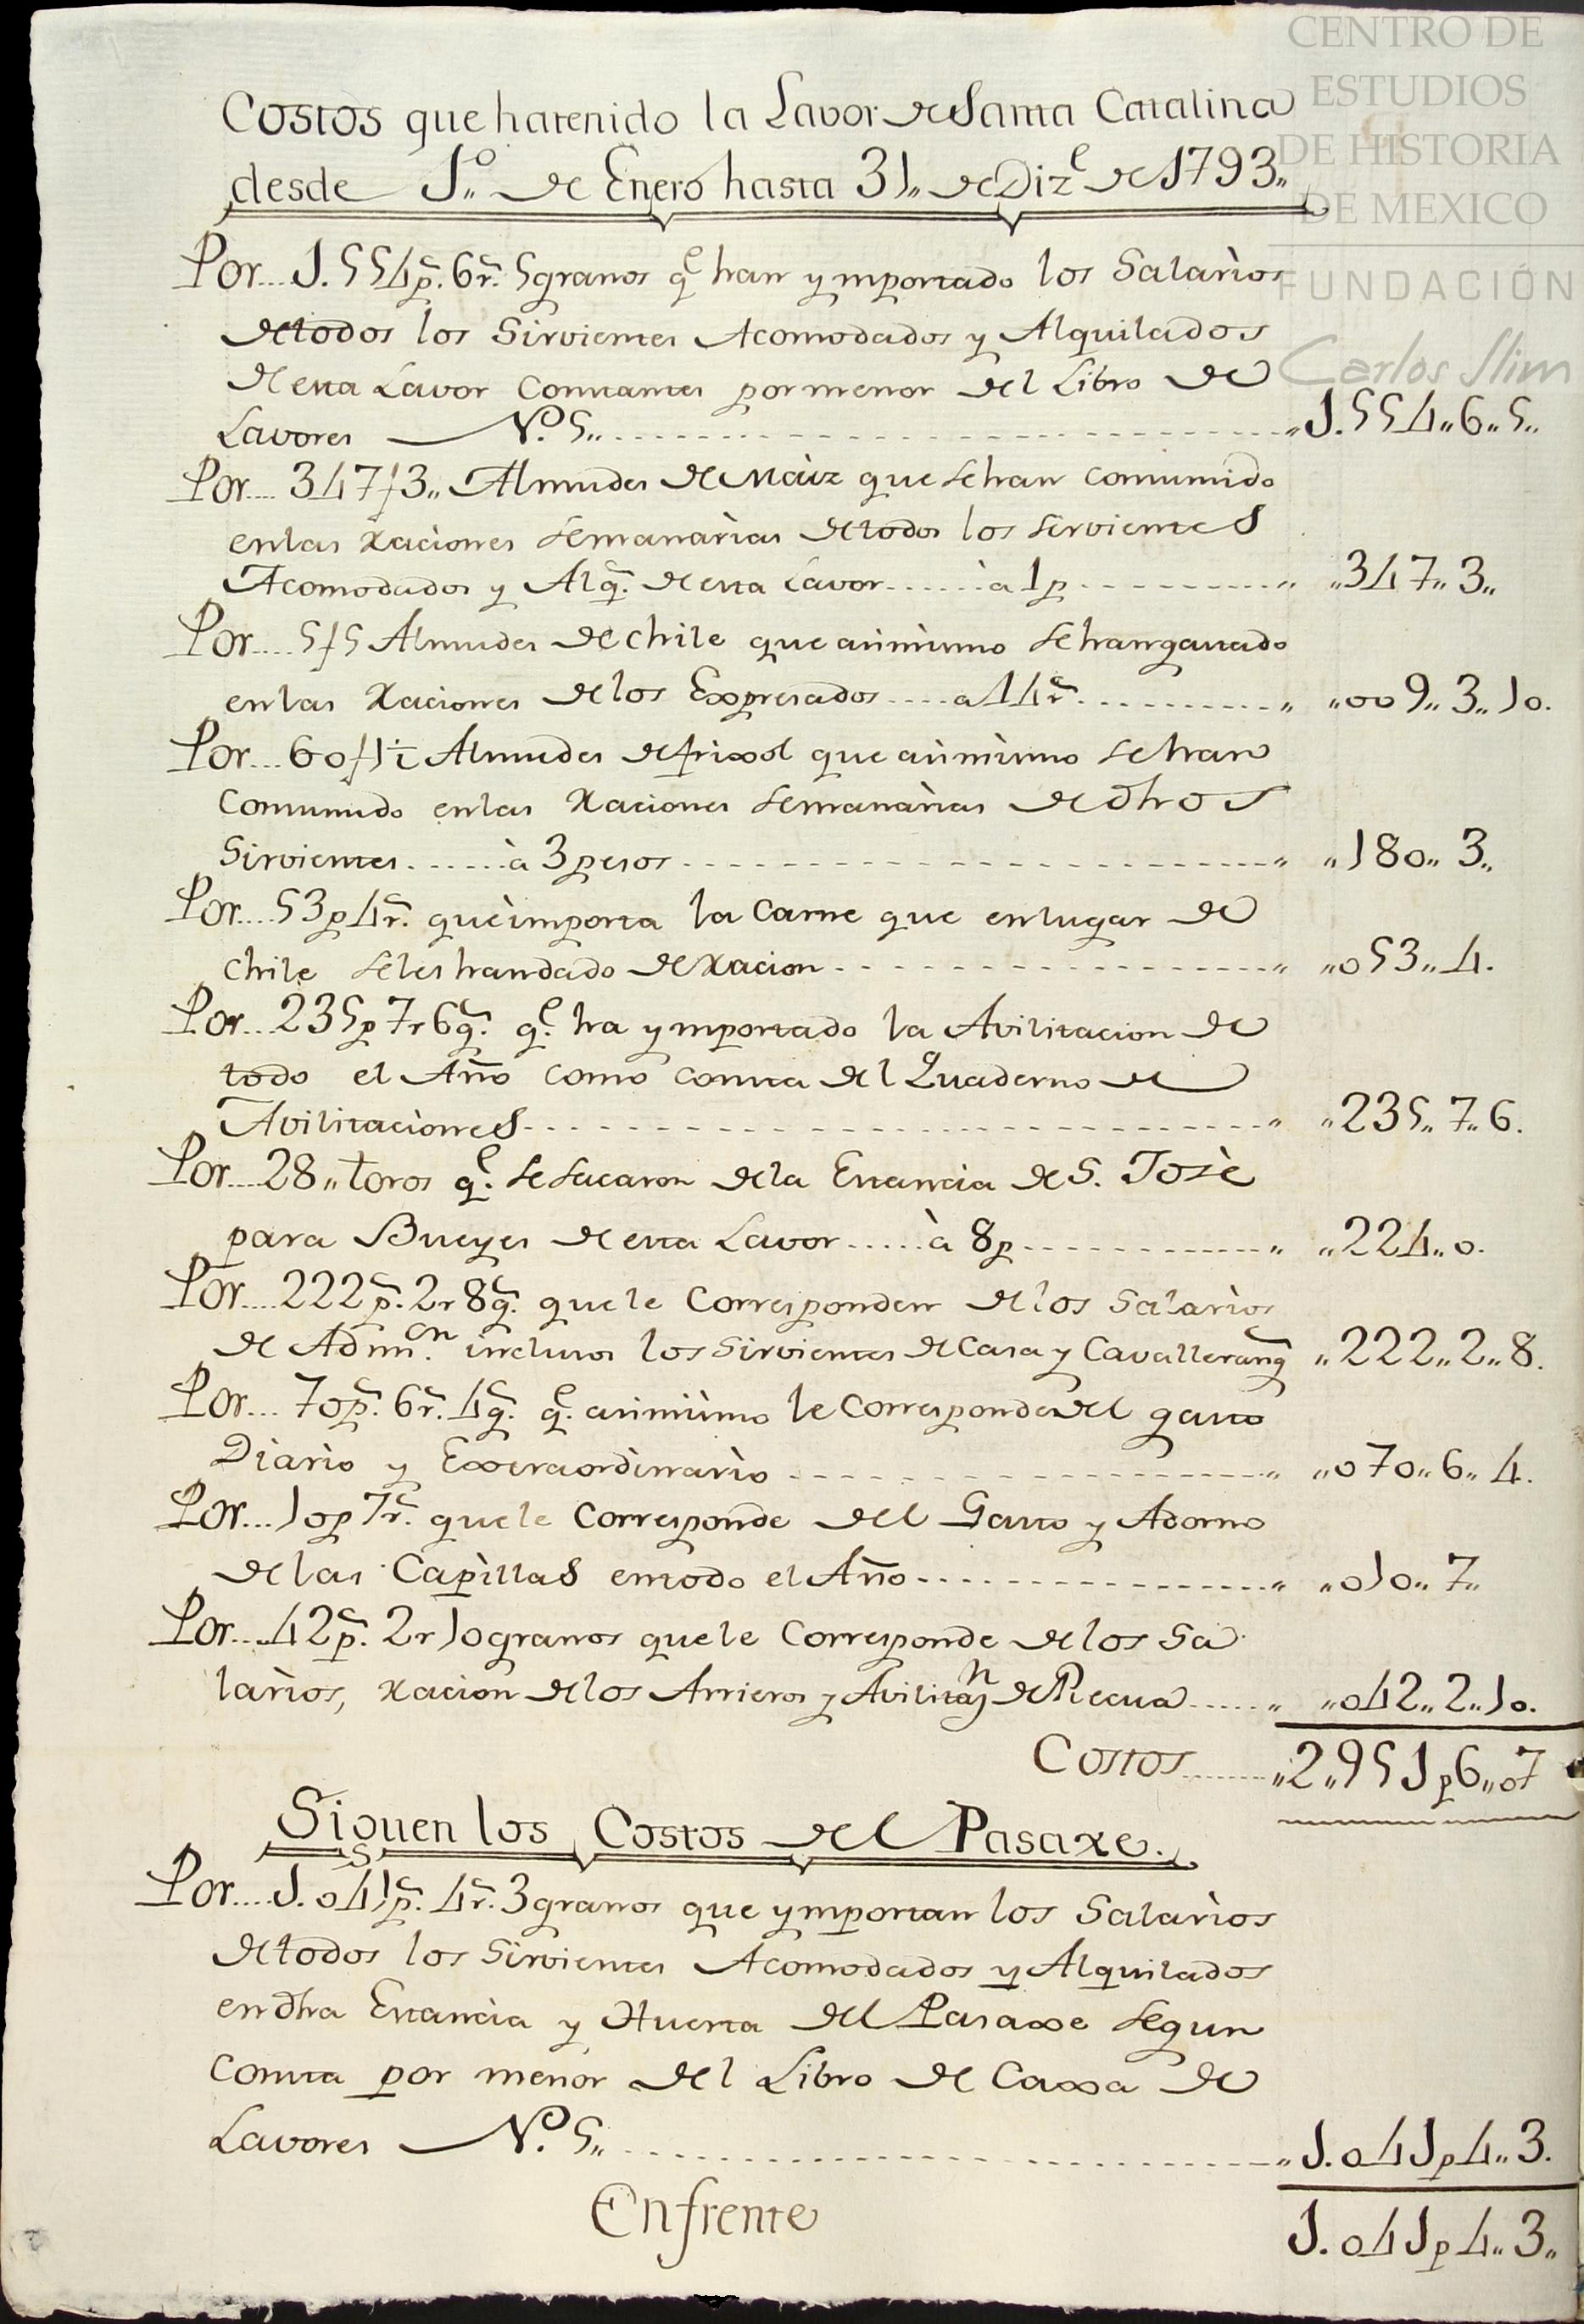 CENTRO DE
ESTUDIOS
DE HISTORIA
DE MEXICO
FUNDACIÓN
Carlos Slim
Costos que ha tenido la Lavor de Santa Catalina
desde 1º.. de Enero hasta 31,, de Dizᵉ de 1793,,
Por.... 1.554p̃. 6r̃. 5granos q̃ᵉ han ymportado los Salarios
de todos los Sirvientes Acomodados y Alquilados
de esta Lavor Constantes por menor del Libro de
Lavores Nº. 5,, ,,1.554,,6,,5,,
Por.... 347ƒ3,, Almudes de Maìz que se han consumido
en las Raciònes Semanarìas de todos los Sirvientes
Acomodados y Alq̃. de esta Lavor......à 1p ,, ,,347,,3,,
Por.... 5ƒ5 Almudes de Chile que asimismo se han gastado
en las Raciones de los Expresados....a 14r̃. ,, ,,009,,3,,10.
Por... 60ƒ1½ Almudes de frixol que asimismo se han
Consumido en las Raciones Semanarias de dhos
Sirvientes......à 3pesos ,, ,,180,,3,,
Por....53p4r̃. que importa la Carne que en lugar de
Chile se les han dado de Racion ,, ,,053,,4.
Por... 235p 7r6g̃. q̃ᵉ. ha ymportado la Avilitacion de
todo el Año como consta del Quaderno de
Avilitaciònes ,, ,,235,,7,,6.
Por....28,, toros q̃ᵉ. se sacaron de la Estancia de S. Josè
para Bueyes de esta Lavor.....à 8p ,, ,,224,,0.
Por....222p̃. 2r 8g̃. que le Corresponden de los Salarios
de Admⁿ. inclusos los Sirvientes de Casa y Cavallerang̃ ,,222,,2,,8.
Por... 70p̃. 6r̃. 4g̃. q̃ᵉ. asimismo le Corresponde del gasto
Diàrio y Extraordinarìo ,, ,,070,,6,,4.
Por...10p 7r̃. que le Corresponde del Gasto y Adorno
de las Capillas en todo el Año ,, ,,010,,7,,
Por....42p̃. 2r 10granos que le Corresponde de los Sa
larìos, Racion de los Arrieros y Avilitaⁿ de Recua......,, ,,042,,2,,10.
Costos........,,2,,951p6,,07
Siguen los Costos del Pasaxe.
Por....1.041p̃. 4r̃. 3granos que ymportan los Salarìos
de todos los Sirvientes Acomodados y Alquilados
en dha Estancia y Huerta del Pasaxe Segun
Consta por menor del Libro de Caxa de
Lavores Nº. 5,, ,,1.041p4,,3.
Enfrente 1.041p4,,3,,